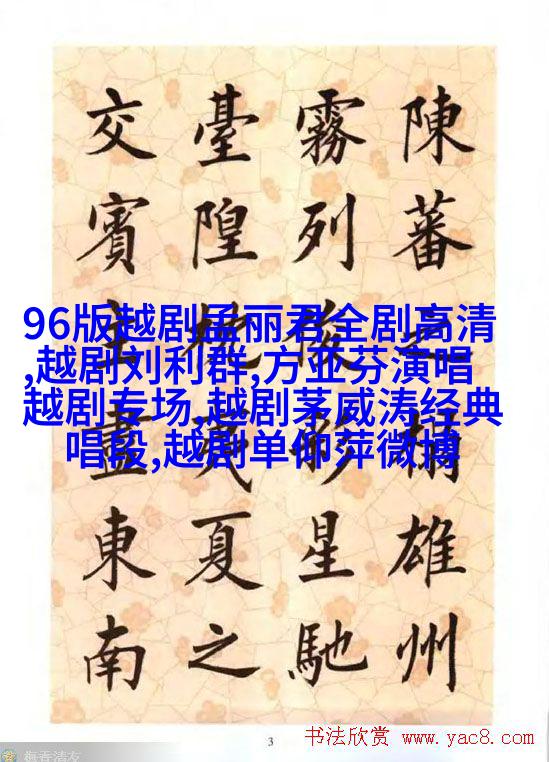 陳蕃之榻雄州
霧列俊彩星馳
臺隍枕夷夏之
交賓主盡東南
96版越剧孟丽君全剧高清
,越剧刘利群,方亚芬演唱
越剧专场,越剧茅威涛经典
唱段,越剧单仰萍微博
3
书法欣赏 www.yac8.com